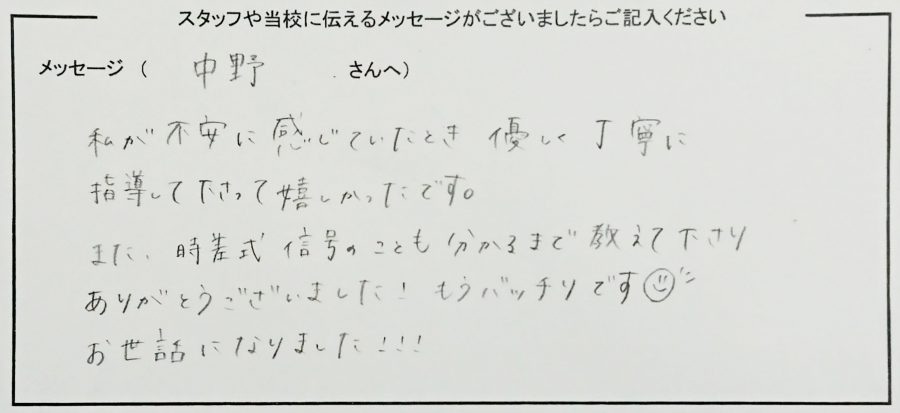 スタッフや当校に伝えるメッセージがございましたらご記入ください
メッセージ ( 中野 さんへ)
私が不安に感じていたとき 優しく丁寧に
指導して下さって嬉しかったです。
また、時差式信号のことも分かるまで教えて下さり
ありがとうございました! もうバッチリです☺
お世話になりました!!!